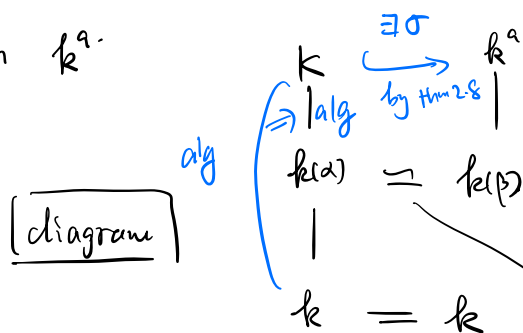 n k^a.
∃σ
K ↪ k^a
by thm 2.8
⇒ alg
alg
k(α) ≃ k(β)
diagram
k = k